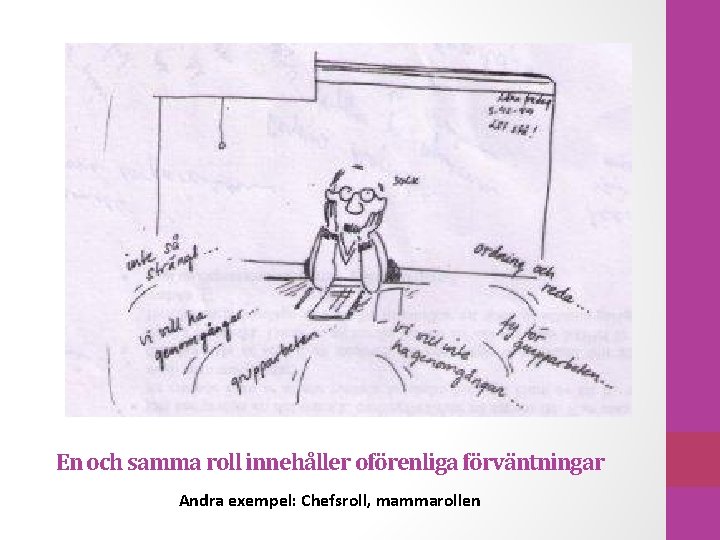 LÄT STÅ!
suck
inte så
strängt...
ordning och
reda...
vi vill ha
genomgångar...
grupparbeten...
vi vill inte
ha genomgångar...
fy för
grupparbeten...
En och samma roll innehåller oförenliga förväntningar
Andra exempel: Chefsroll, mammarollen